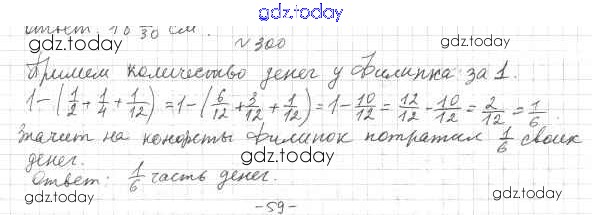 gdz.today
Ответ: 10 7/30 см.
gdz.today
№ 300
gdz.today
Примем количество денег у Филипка за 1.
1-(1/2+1/4+1/12)=1-(6/12+3/12+1/12)=1-10/12=12/12-10/12=2/12=1/6.
Значит на конфеты Филипок потратил 1/6 своих
gdz.today
gdz.today
денег.
gdz.today
Ответ: 1/6 часть денег.
-59-
gdz.today